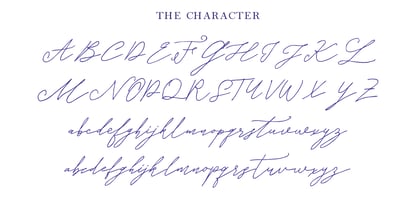 THE CHARACTER
A B C D E F G H I J K L
M N O P Q R S T U V W X Y Z
abcdefghijklmnopqrstuvwxyz
abcdefghijklmnopqrstuvwxyz